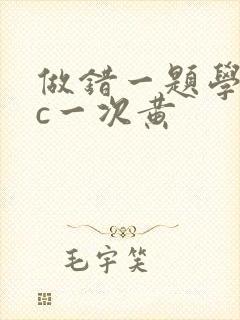 做錯一題學
c一次黃
毛宇笑